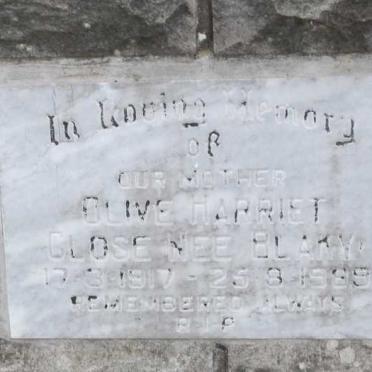 In Loving Memory
OF
OUR MOTHER
OLIVE HARRIET
CLOSE NEE BLAKY
17-3-1917 - 25-8-1999
REMEMBERED ALWAYS
R·I·P